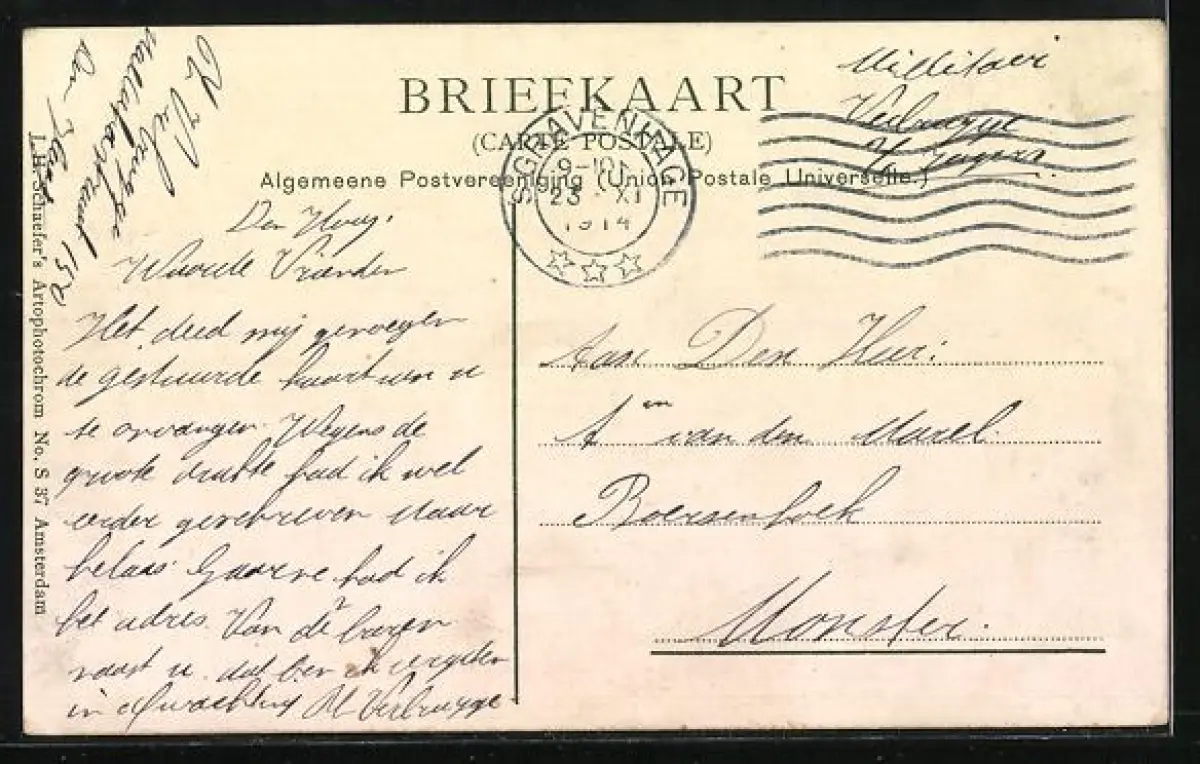 BRIEFKAART
(CARTE POSTALE)
Algemeene Postvereeniging (Union Postale Universelle.)
Militair
Verbrugge
Jagers
'S GRAVENHAGE
9-10
23 XI
1914
Den Haag.
Waarde Vrienden
Het deed mij genoegen
de gestuurde kaart van u
te ontvangen Wegens de
groote drukte had ik wel
eerder geschreven maar
helaas. Gaarne had ik
het adres. Van de
naast u dat ben ik vergeten
in afwachting Verbrugge
Aan Den Heer:
A en van den Marel
Boersenhoek
Monster.
Verbrugge
L. H. Schaefer's Artophotochrom No. S 37 Amsterdam